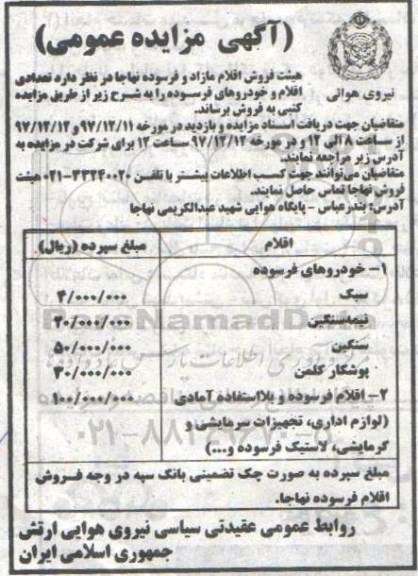 (آگهی مزایده عمومی)
نیروی هوائی
هیئت فروش اقلام مازاد و فرسوده نهاجا در نظر دارد تعدادی
اقلام و خودروهای فرسوده را به شرح زیر از طریق مزایده
کتبی به فروش برساند.
متقاضیان جهت دریافت اسناد مزایده و بازدید در مورخه ۹۷/۱۲/۱۱ و ۹۷/۱۲/۱۲
از ساعت ۸ الی ۱۲ و در مورخه ۹۷/۱۲/۱۳ ساعت ۱۲ برای شرکت در مزایده به
آدرس زیر مراجعه نمایند.
متقاضیان می‌توانند جهت کسب اطلاعات بیشتر با تلفن ۳۳۲۴۰۰۲۰-۰۲۱ هیئت
فروش نهاجا تماس حاصل نمایند.
آدرس: بندرعباس - پایگاه هوایی شهید عبدالکریمی نهاجا
اقلام مبلغ سپرده (ریال)
۱- خودروهای فرسوده
سبک ۴/۰۰۰/۰۰۰
نیمه‌سنگین ۲۰/۰۰۰/۰۰۰
سنگین ۵۰/۰۰۰/۰۰۰
پوشکار کلمن ۳۰/۰۰۰/۰۰۰
۲- اقلام فرسوده و بلااستفاده آمادی ۱۰۰/۰۰۰/۰۰۰
(لوازم اداری، تجهیزات سرمایشی و
گرمایشی، لاستیک فرسوده و...)
مبلغ سپرده به صورت چک تضمینی بانک سپه در وجه فروش
اقلام فرسوده نهاجا.
روابط عمومی عقیدتی سیاسی نیروی هوایی ارتش
جمهوری اسلامی ایران
ParsNamadData